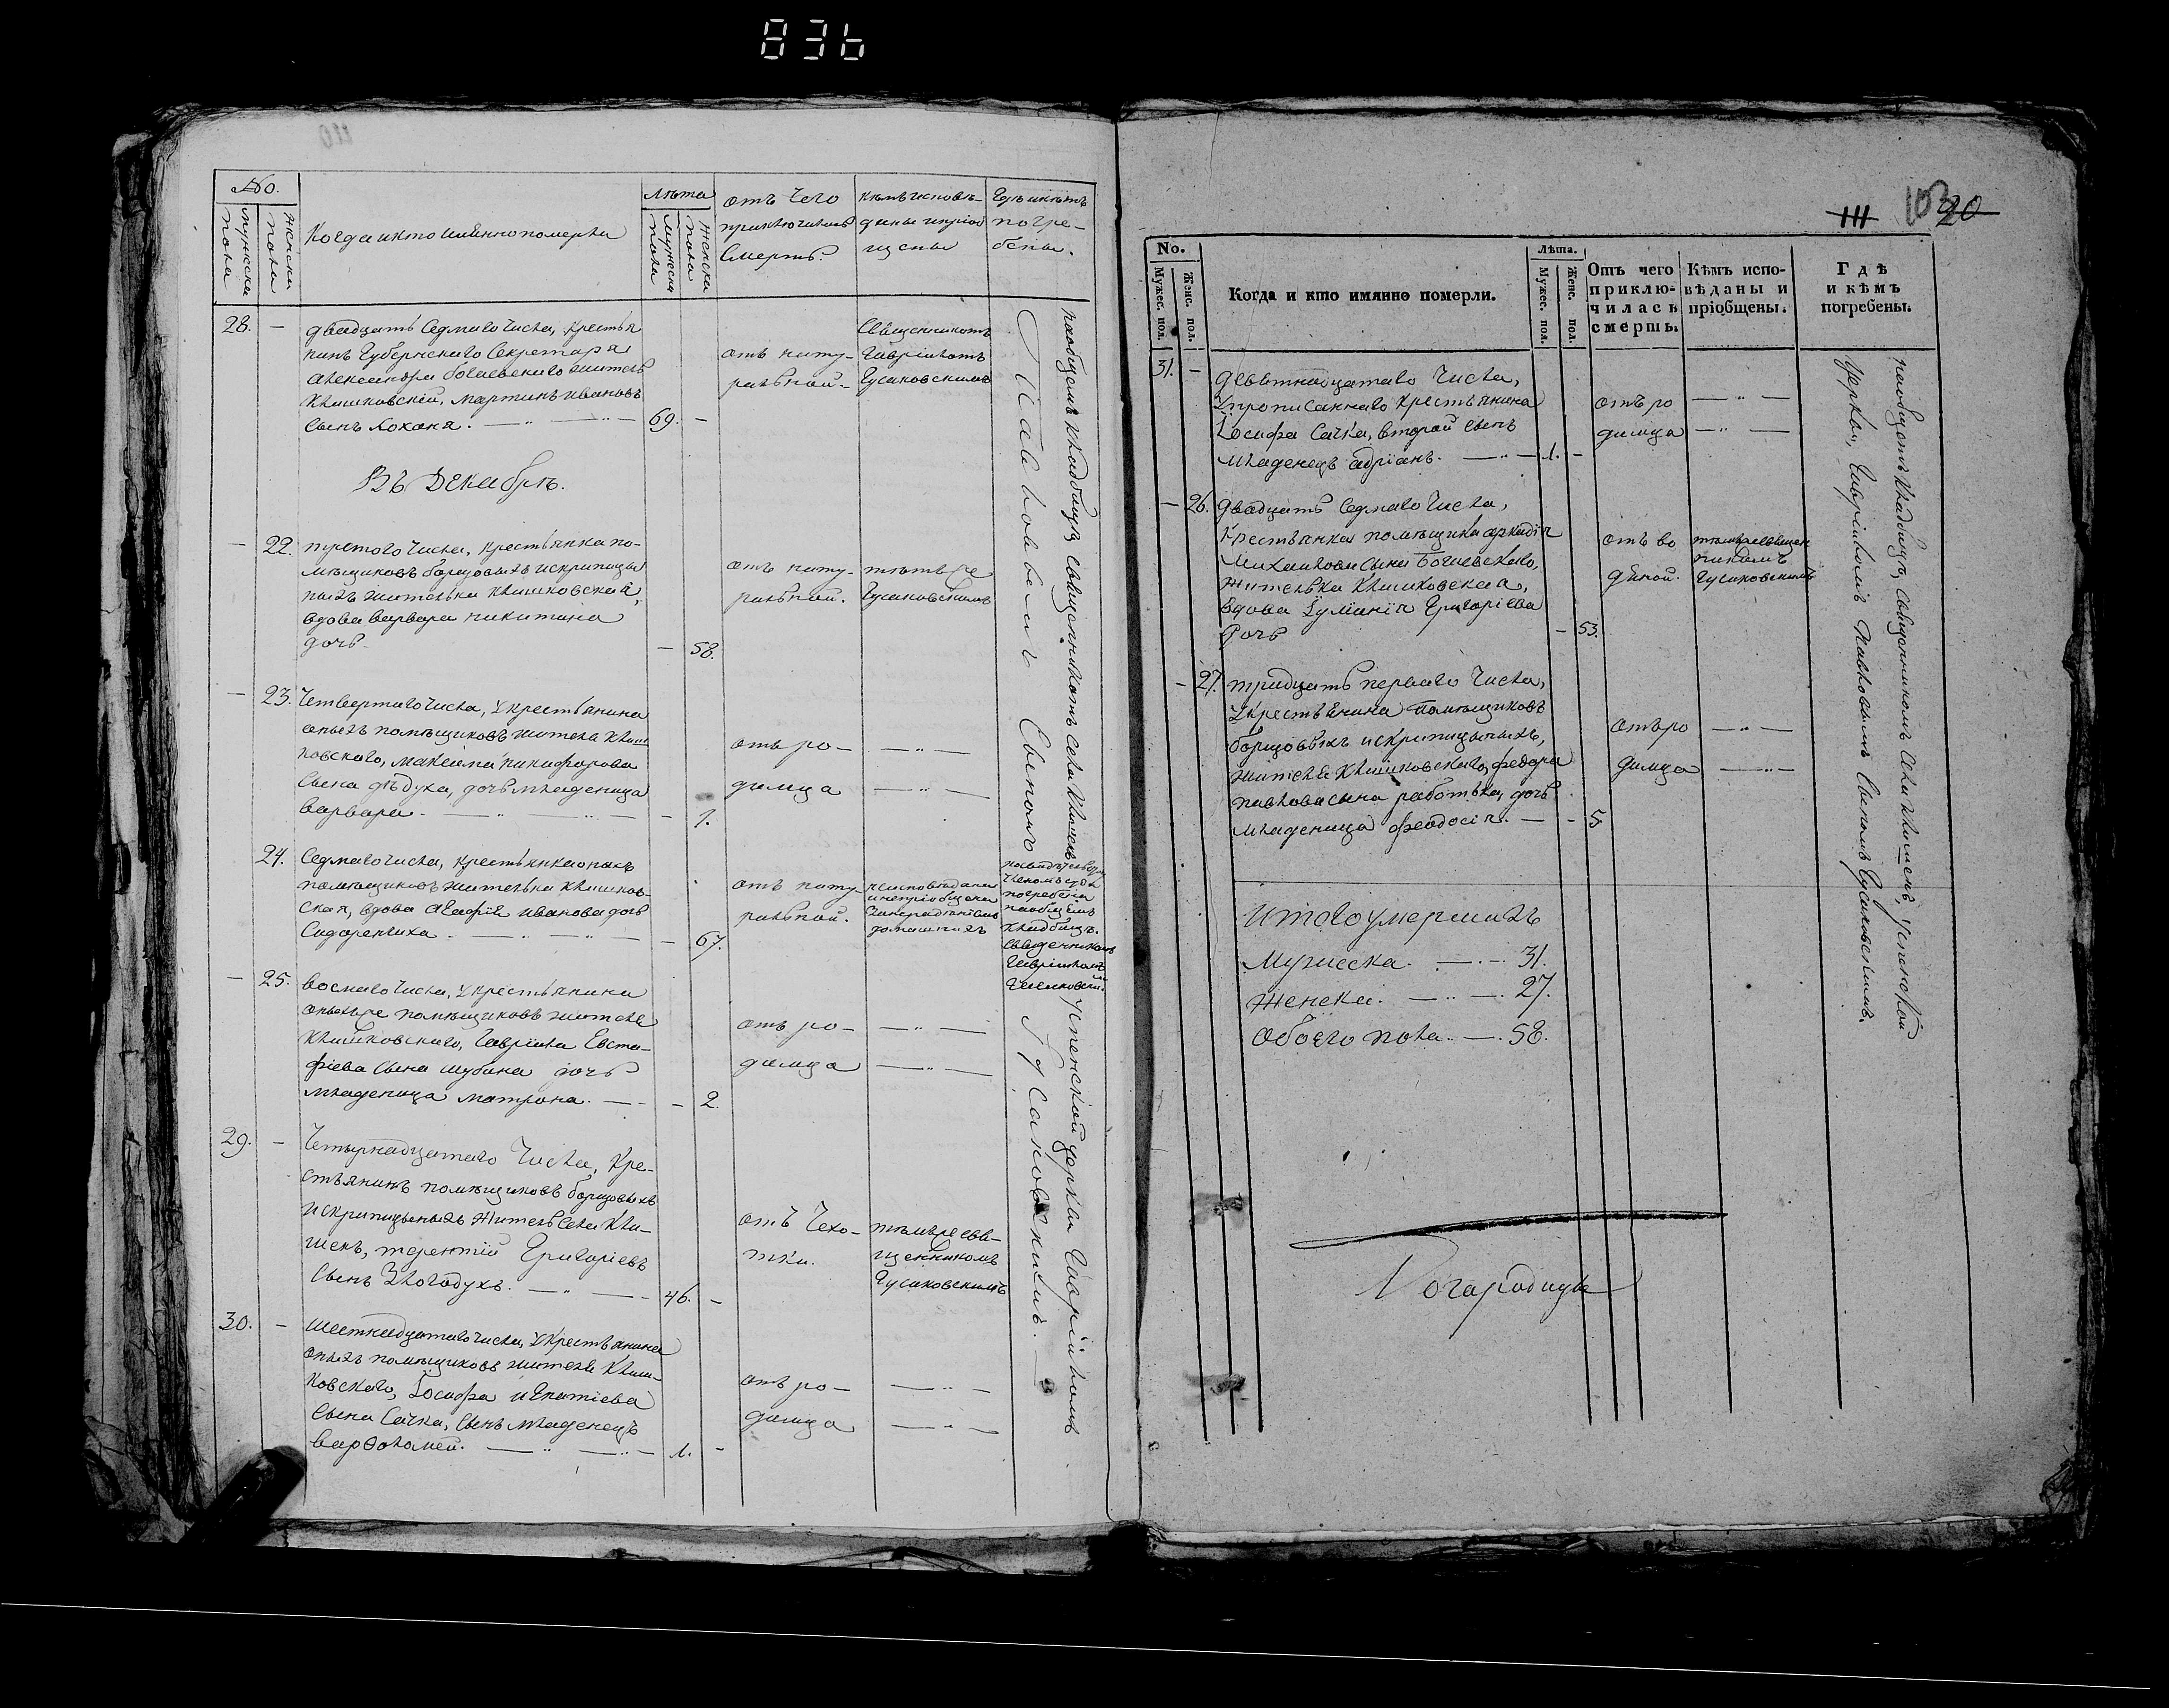 836
No.
мужеска пола
женска пола
Когда и кто имянно померли
лѣта
мужеска пола
женска пола
отъ чего
приключилась
смерть.
кѣмъ исповѣ-
даны и пріоб
щены
Гдѣ и кѣмъ
погре-
бены.
28. —
двадцать седмаго числа, крестья
нинъ Губернскаго Секретаря
Александра богаевскаго житель
Клишковскій, мартинъ ивановъ
сынъ Коханъ. — 69. —
отъ нату-
ральной.
Священникомъ
Гавріиломъ
Гусаковскимъ
Въ Декабрѣ.
— 22.
третого числа, крестьянка по-
мѣщиковъ борщовыхъ и скрипицы
ныхъ жителька клишковская,
вдова варвара никитина
дочь — 58.
отъ нату-
ральной.
тѣмъ же
Гусаковскимъ
— 23.
Четвертаго числа, у крестьянина
оныхъ помѣщиковъ жителя клиш
ковского, максима никифорова
сына дѣдуха, дочь младеница
варвара. — 1.
отъ ро-
димца
24.
Седмаго числа, крестьянка оныхъ
помѣщиковъ жителька клишков-
ская, вдова Агафія иванова дочь
Сидоренчиха — 67.
отъ нату-
ральной.
неисповѣдана
и непріобщена
за нерадѣніемъ
домашнихъ
погребена
на общемъ
кладбищѣ.
священникомъ
Гавріиломъ
Гусаковским.
— 25.
восмаго числа, у крестьянина
оныхъ же помѣщиковъ жителя
клишковского, Гавріила Евста-
фіева сына шубина дочь
младеница матрона. — 2.
отъ ро-
димца
29. —
Четырнадцатаго числа, кре-
стьянинъ помѣщиковъ борщовыхъ
и скрипицыныхъ житель села Кли-
шекъ, терентій Григоріевъ
сынъ Злогодухъ. — 46. —
отъ чехо-
тки.
тѣмъ же свя-
щенникомъ
Гусаковскимъ
30. —
шестнадцатаго числа, у крестьянина
оныхъ помѣщиковъ жителя клиш-
ковского, Іосифа игнатіева
сына сачка, сынъ младенецъ
варѳоломей. — 1. —
отъ ро-
димца
на общемъ кладбищѣ священникомъ села клишекъ успенской церкви Гавріиломъ
Павловымъ Сыномъ Гусаковскимъ.
111 103 20
No.
Мужес. пол.
Женс. пол.
Когда и кто имянно померли.
Лѣта.
Мужес. пол.
Женс. пол.
Отъ чего
приклю-
чилась
смерть.
Кѣмъ испо-
вѣданы и
пріобщены.
Гдѣ
и кѣмъ
погребены.
31. —
девятнадцатаго числа,
у прописаннаго крестьянина
Іосифа сачка, второй сынъ
младенецъ адріанъ. — 1. —
отъ ро
димца
— 26.
двадцать седмаго числа,
крестьянка помѣщика аркадія
михаилова сына богаевскаго,
жителька клишковская,
вдова Іуліанія Григоріева
дочь — 53.
отъ во
дяной.
тѣмъ же священ
никомъ
Гусаковскимъ
— 27.
тридцать перваго числа,
у крестьянина помѣщиковъ
борщовыхъ и скрипицыныхъ,
жителя клишковскаго, федора
павлова сына работька, дочь
младеница феодосія. — 5
отъ ро
димца
на общемъ кладбищѣ, священникомъ села клишекъ, успенской
церкви, Гавріиломъ Павловымъ сыномъ Гусаковскимъ.
итого умершихъ
мужеска. — 31.
женска. — 27.
обоего пола. — 58.